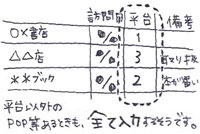 訪問日 平台 備考
○×書店 % 1
△△店 % 3 耳より板
水木ブック % 2 本が習い
平台以外の
POP等あるときも、全て入力するそうです。